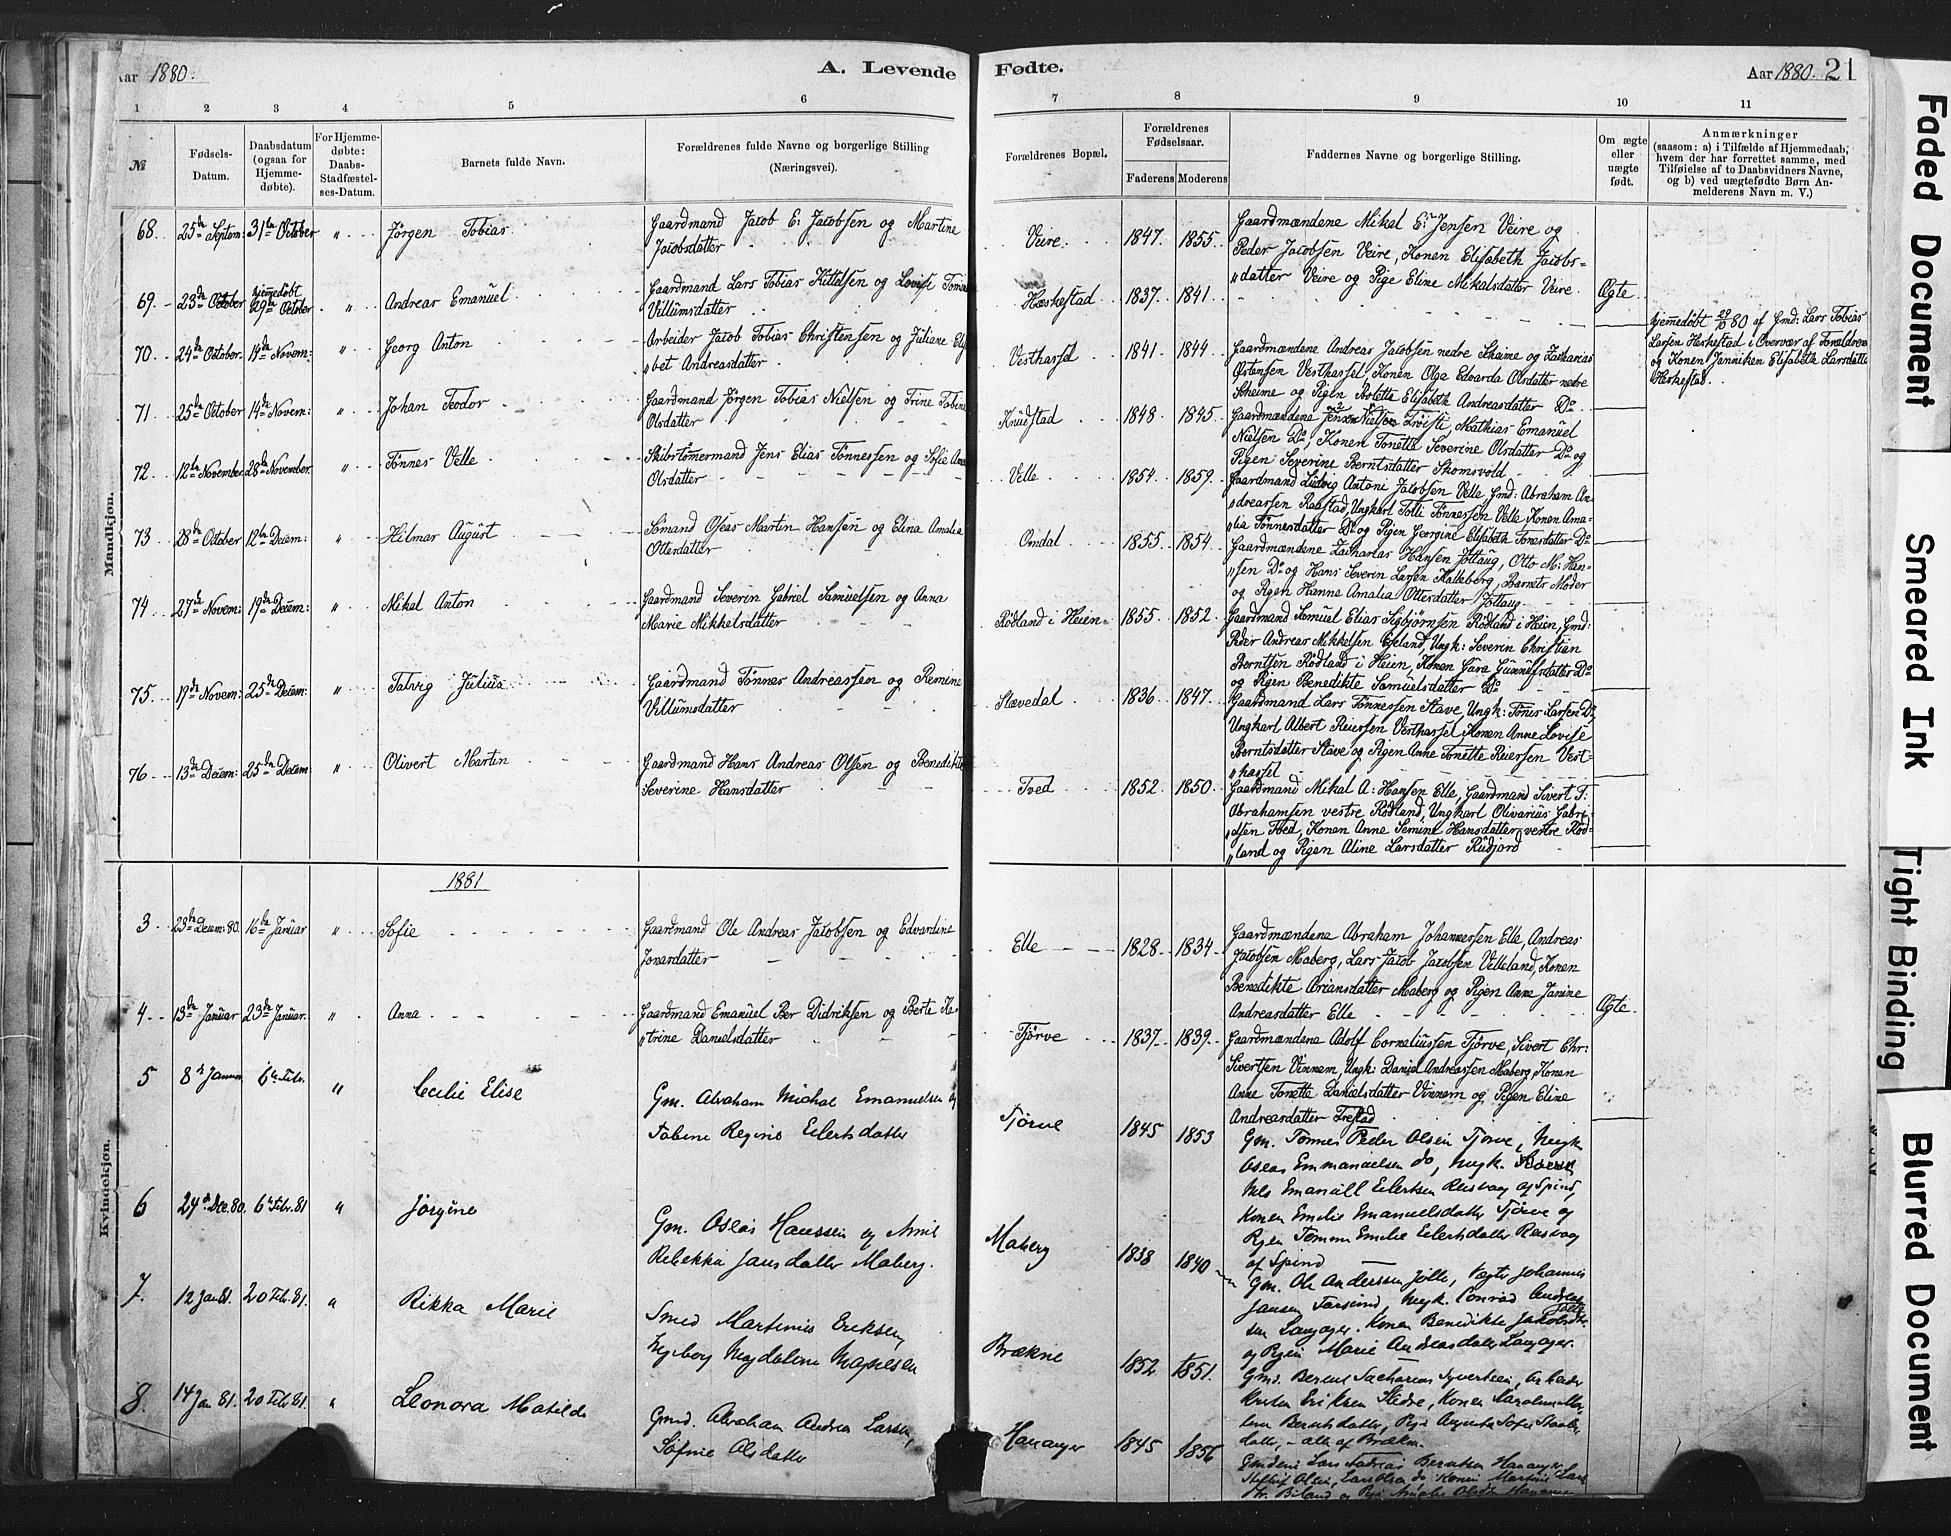 Aar 1880.
A. Levende Fødte.
Aar 1880. 21
1 2 3 4 5 6 7 8 9 10 11
№
Fødsels-
Datum.
Daabsdatum
(ogsaa for
Hjemme-
døbte).
For Hjemme-
døbte:
Daabs-
Stadfæstel-
ses-Datum.
Barnets fulde Navn.
Forældrenes fulde Navne og borgerlige Stilling
(Næringsvei).
Forældrenes Bopæl.
Forældrenes
Fødselsaar.
Faderens Moderens
Faddernes Navne og borgerlige Stilling.
Om ægte
eller
uægte
født.
Anmærkninger
(saasom: a) i Tilfælde af Hjemmedaab,
hvem der har forrettet samme, med
Tilføielse af to Daabsvidners Navne,
og b) ved uægtefødte Børn An-
melderens Navn m. V.)
Mandkjøn.
68. 25de Septem: 31te October „ Jörgen Tobias
Gaardmand Jacob E. Jacobsen og Martine
Jacobsdatter
Veire. 1847. 1855.
Gaardmændene Mikal E. Jensen Veire og
Peder Jacobsen Veire, Konen Elisabeth Jacobs-
„datter Veire og Pige Eline Mikalsdatter Veire.
69. 23de October hjemmedøbt 29de October „ Andreas Emanuel
Gaardmand Lars Tobias Kittelsen og Lovise
Villumsdatter
Hæskestad 1837. 1841. Ægte
hjemmedøbt 29/10 80 af Gmd: Lars Tobias
Larsen Heskestad i Overvær af Forældrene
og Konen Janniken Elisabeth Larsdatter
Heskestad.
70. 24de October 14de Novem: „ Georg Anton
Arbeider Jacob Tobias Christensen og Juliane
„bet Andreasdatter
Vesthassel 1841. 1844.
Gaardmændene Andreas Jacobsen nedre Skeime og Zacharias
Østensen Vesthassel, Konen Olga Edvarda Olsdatter nedre
Skeime og Pigen Elisabeth Andreasdatter Do
71. 25de October 14de Novem: „ Johan Teodor
Gaardmand Jörgen Tobias Nielsen og Trine
Olsdatter
Knudstad 1848. 1845.
Gaardmændene Jens Nielsen Mathias Emanuel
Nielsen Do, Konen Tonette Severine Olsdatter Do og
Pigen Severine Berntsdatter Skomsvold
72. 12te November 28de November. „ Tönnes Velle
Skibstömmermand Jens Elias Tönnessen og Sofie
Olsdatter
Velle 1854. 1859.
Gaardmand Ludvig Antoni Jacobsen Velle, Gmd: Abraham An-
„dreassen Raastad, Ungkarl Tolli Tönnessen Velle, Konen Ama-
„lia Tönnesdatter Do og Pigen Georgine Elisabeth Tönnesdatter Do
73 28de October 12te Decem: „ Hilmar August
Sömand Oseas Martin Hansen og Elina Amalia
Ottersdatter
Omdal 1855. 1854.
Gaardmændene Zacharias Hansen Jöllaug, Otto M: Han-
„sen Do og Hans Severin Larsen Kalleberg, Barnets Moder
og Pigen Hanne Amalia Ottersdatter Jöllaug
74 27de Novem: 19de Decem: „ Mikal Anton
Gaardmand Severin Gabriel Samuelsen og Anna
Marie Mikkelsdatter
Rödland i Heien 1855. 1852.
Gaardmand Samuel Elias Sigbjörnsen Rödland i Heien, Gmd:
Peder Andreas Mikkelsen Ungk: Severin Christian
Berntsen Rödland i Heien, Konen Do
og Pigen Benedikte Samuelsdatter Do
75. 19de Novem: 25de Decem: „ Talvig Julius
Gaardmand Tönnes Andreassen og Remine
Villumsdatter
Stavedal 1836. 1847.
Gaardmand Lars Tönnessen Stave, Ungk: Larsen Do,
Ungkarl Albert Reiersen Vesthassel, Konen Anne Lovise
Berntsdatter Stave og Pigen Anne Tonette Reiersen Vest-
„hassel
76 13de Decem: 25de Decem: „ Olivert Martin
Gaardmand Hans Andreas Olsen og Benedikte
Severine Hansdatter
Tved 1852. 1850.
Gaardmand Mikal A: Hansen Elle, Gaardmand Sivert T:
Abrahamsen vestre Rödland, Ungkarl Olivarius Gabri-
„elsen Tved, Konen Anne Semine Hansdatter vestre Röd-
„land og Pigen Aline Larsdatter Rudjord
1881
Kvindekjøn.
3 23de Decem: 80. 16de Januar „ Sofie
Gaardmand Ole Andreas Jacobsen og Edvardine
Jonasdatter
Elle 1828. 1834.
Gaardmændene Abraham Johannessen Elle, Andreas
Jacobsen Maberg, Lars Jacob Jacobsen Velleland, Konen
Benedikte Ariansdatter Maberg og Pigen Anne Janine
Andreasdatter Elle
4 13de Januar 23de Januar. „ Anna
Gaardmand Emanuel Ber Didriksen og Berte Ka-
„trine Danielsdatter
Tjörve 1837. 1839. Ægte
Gaardmændene Adolf Corneliussen Tjörve, Sivert Chr:
Sivertsen Vinnem, Ungk: Daniel Andreassen Maberg, Konen
Anne Tonette Danielsdatter Vinnem og Pigen Eline
Andreasdatter
5 8de Januar 6te Febr. „ Cecilie Elise
Gm. Abraham Michal Emanuelsen og
Tobine Regine Eilertsdatter
Tjörve 1845 1853
Gm. Tønnes Peder Olsen Tjörve, Ungk
Oseas Emmanuelsen do, Ungk.
Nels Emanuel Eilertsen Resvag af Spind,
Konen Emilie Emanuelsdatter Tjörve og
Pigen Emelie Eilertsdatter Resvag
af Spind
6 24de Dec. 80. 6te Febr. 81 „ Jørgine
Gm. Oseas Hanssen og
Rebekka Jansdatter Maberg.
Maberg 1838 1840
Gm. Ole Anderssen Jölle, Johannes
Jansen Ungk. Conrad Andreas-
sen Langager. Konen Benedikte Jakobsdtr. Jølle
og Pigen Marie Andreasdatter Langager.
7. 12 Jan 81. 20 Febr. 81. „ Rikka Marie
Smed Martinus Eriksen,
Ingeborg Magdalene
Brækne 1852 1851.
Gmd. Berent Sacharias Syvertsen,
Eriksen Konen
Berntsdatter, Pige Sofie
datter, – alle af Brækne.
8. 14 Jan 81. 20 Febr 81. „ Leonora Matilde
Gmd. Abraham Andreas Larsen,
Olsdatter
Hananger 1845 1856
Lars Berntsen Hananger,
Olsen, Lars Olsen do Konen
Faded Document
Smeared Ink
Tight Binding
Blurred Document